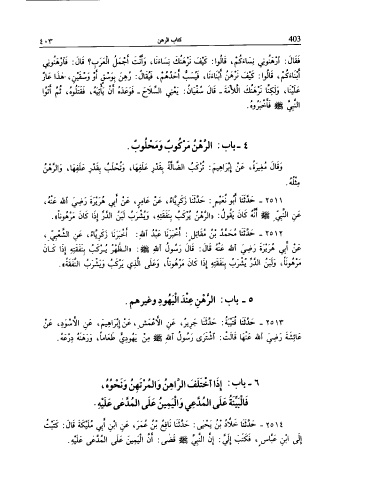 403 كتاب الرهن ٤٠٣
فَقَالَ: ارْهَنُونِي نِسَاءَكُمْ، قَالُوا: كَيْفَ نَرْهَنُكَ نِسَاءَنَا، وَأَنْتَ أَجْمَلُ الْعَرَبِ؟ قَالَ: فَارْهَنُونِي
أَبْنَاءَكُمْ، قَالُوا: كَيْفَ نَرْهَنُ أَبْنَاءَنَا، فَيُسَبُّ أَحَدُهُمْ، فَيُقَالُ: رُهِنَ بِوَسْقٍ أَوْ وَسْقَيْنِ، هٰذَا عَارٌ
عَلَيْنَا، وَلٰكِنَّا نَرْهَنُكَ اللَّأْمَةَ ـ قَالَ سُفْيَانُ: يَعْنِي السِّلَاحَ ـ فَوَعَدَهُ أَنْ يَأْتِيَهُ، فَقَتَلُوهُ، ثُمَّ أَتَوُا
النَّبِيَّ ﷺ فَأَخْبَرُوهُ.
٤ ـ باب: الرَّهْنُ مَرْكُوبٌ وَمَحْلُوبٌ.
وَقَالَ مُغِيرَةُ، عَنْ إِبْرَاهِيمَ: تُرْكَبُ الضَّالَّةُ بِقَدْرِ عَلَفِهَا، وَتُحْلَبُ بِقَدْرِ عَلَفِهَا، وَالرَّهْنُ
مِثْلُهُ.
٢٥١١ ـ حَدَّثَنَا أَبُو نُعَيْمٍ: حَدَّثَنَا زَكَرِيَّاءُ، عَنْ عَامِرٍ، عَنْ أَبِي هُرَيْرَةَ رَضِيَ اللهُ عَنْهُ،
عَنِ النَّبِيِّ ﷺ أَنَّهُ كَانَ يَقُولُ: «الرَّهْنُ يُرْكَبُ بِنَفَقَتِهِ، وَيُشْرَبُ لَبَنُ الدَّرِّ إِذَا كَانَ مَرْهُوناً».
٢٥١٢ ـ حَدَّثَنَا مُحَمَّدُ بْنُ مُقَاتِلٍ: أَخْبَرَنَا عَبْدُ اللهِ: أَخْبَرَنَا زَكَرِيَّاءُ، عَنِ الشَّعْبِيِّ،
عَنْ أَبِي هُرَيْرَةَ رَضِيَ اللهُ عَنْهُ قَالَ: قَالَ رَسُولُ اللهِ ﷺ: «الظَّهْرُ يُرْكَبُ بِنَفَقَتِهِ إِذَا كَانَ
مَرْهُوناً، وَلَبَنُ الدَّرِّ يُشْرَبُ بِنَفَقَتِهِ إِذَا كَانَ مَرْهُوناً، وَعَلَى الَّذِي يَرْكَبُ وَيَشْرَبُ النَّفَقَةُ».
٥ ـ باب: الرَّهْنِ عِنْدَ الْيَهُودِ وَغَيْرِهِمْ.
٢٥١٣ ـ حَدَّثَنَا قُتَيْبَةُ: حَدَّثَنَا جَرِيرٌ، عَنِ الْأَعْمَشِ، عَنْ إِبْرَاهِيمَ، عَنِ الْأَسْوَدِ، عَنْ
عَائِشَةَ رَضِيَ اللهُ عَنْهَا قَالَتْ: اشْتَرَى رَسُولُ اللهِ ﷺ مِنْ يَهُودِيٍّ طَعَاماً، وَرَهَنَهُ دِرْعَهُ.
٦ ـ باب: إِذَا اخْتَلَفَ الرَّاهِنُ وَالْمُرْتَهِنُ وَنَحْوُهُ،
فَالْبَيِّنَةُ عَلَى الْمُدَّعِي وَالْيَمِينُ عَلَى الْمُدَّعَى عَلَيْهِ.
٢٥١٤ ـ حَدَّثَنَا خَلَّادُ بْنُ يَحْيَى: حَدَّثَنَا نَافِعُ بْنُ عُمَرَ، عَنِ ابْنِ أَبِي مُلَيْكَةَ قَالَ: كَتَبْتُ
إِلَى ابْنِ عَبَّاسٍ، فَكَتَبَ إِلَيَّ: إِنَّ النَّبِيَّ ﷺ قَضَى: أَنَّ الْيَمِينَ عَلَى الْمُدَّعَى عَلَيْهِ.